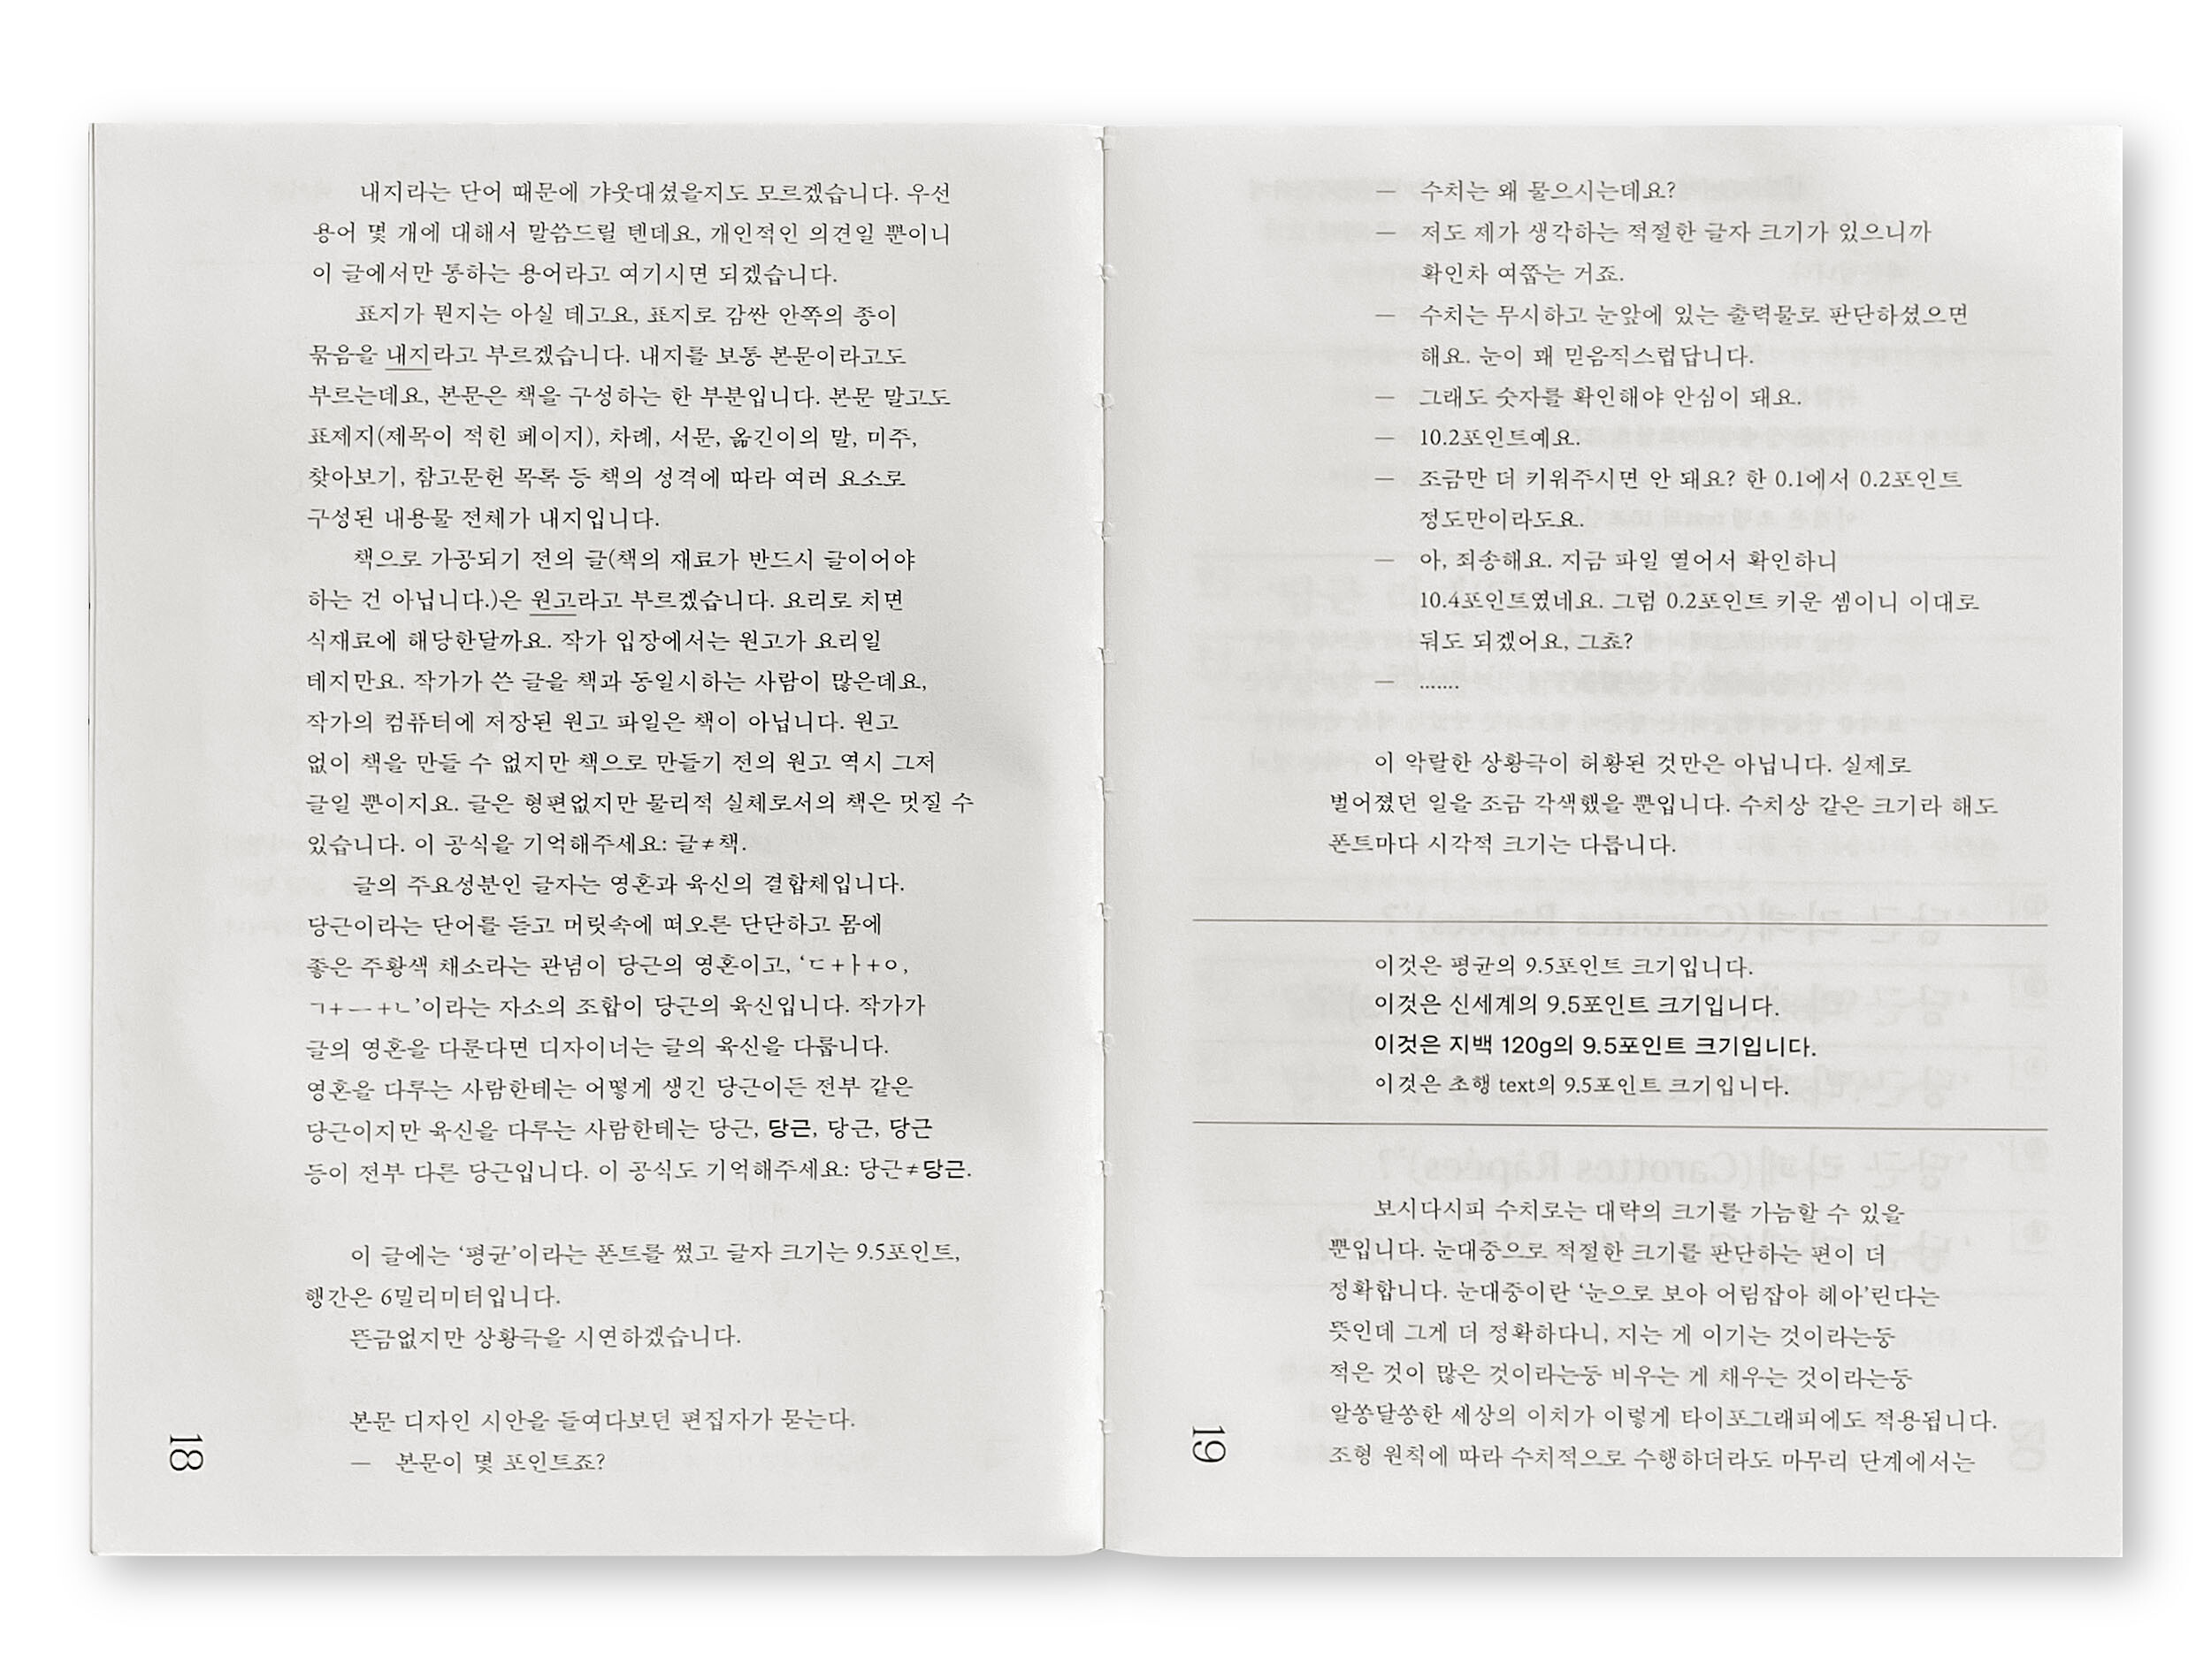 내지라는 단어 때문에 갸웃대셨을지도 모르겠습니다. 우선
용어 몇 개에 대해서 말씀드릴 텐데요, 개인적인 의견일 뿐이니
이 글에서만 통하는 용어라고 여기시면 되겠습니다.
표지가 뭔지는 아실 테고요, 표지로 감싼 안쪽의 종이
묶음을 내지라고 부르겠습니다. 내지를 보통 본문이라고도
부르는데요, 본문은 책을 구성하는 한 부분입니다. 본문 말고도
표제지(제목이 적힌 페이지), 차례, 서문, 옮긴이의 말, 미주,
찾아보기, 참고문헌 목록 등 책의 성격에 따라 여러 요소로
구성된 내용물 전체가 내지입니다.
책으로 가공되기 전의 글(책의 재료가 반드시 글이어야
하는 건 아닙니다.)은 원고라고 부르겠습니다. 요리로 치면
식재료에 해당한달까요. 작가 입장에서는 원고가 요리일
테지만요. 작가가 쓴 글을 책과 동일시하는 사람이 많은데요,
작가의 컴퓨터에 저장된 원고 파일은 책이 아닙니다. 원고
없이 책을 만들 수 없지만 책으로 만들기 전의 원고 역시 그저
글일 뿐이지요. 글은 형편없지만 물리적 실체로서의 책은 멋질 수
있습니다. 이 공식을 기억해주세요: 글≠책.
글의 주요성분인 글자는 영혼과 육신의 결합체입니다.
당근이라는 단어를 듣고 머릿속에 떠오른 단단하고 몸에
좋은 주황색 채소라는 관념이 당근의 영혼이고, ‘ㄷ+ㅏ+ㅇ,
ㄱ+ㅡ+ㄴ’이라는 자소의 조합이 당근의 육신입니다. 작가가
글의 영혼을 다룬다면 디자이너는 글의 육신을 다룹니다.
영혼을 다루는 사람한테는 어떻게 생긴 당근이든 전부 같은
당근이지만 육신을 다루는 사람한테는 당근, 당근, 당근, 당근
등이 전부 다른 당근입니다. 이 공식도 기억해주세요: 당근≠당근.
이 글에는 ‘평균’이라는 폰트를 썼고 글자 크기는 9.5포인트,
행간은 6밀리미터입니다.
뜬금없지만 상황극을 시연하겠습니다.
본문 디자인 시안을 들여다보던 편집자가 묻는다.
— 본문이 몇 포인트죠?
18
— 수치는 왜 물으시는데요?
— 저도 제가 생각하는 적절한 글자 크기가 있으니까
확인차 여쭙는 거죠.
— 수치는 무시하고 눈앞에 있는 출력물로 판단하셨으면
해요. 눈이 꽤 믿음직스럽답니다.
— 그래도 숫자를 확인해야 안심이 돼요.
— 10.2포인트예요.
— 조금만 더 키워주시면 안 돼요? 한 0.1에서 0.2포인트
정도만이라도요.
— 아, 죄송해요. 지금 파일 열어서 확인하니
10.4포인트였네요. 그럼 0.2포인트 키운 셈이니 이대로
둬도 되겠어요, 그쵸?
— …….
이 악랄한 상황극이 허황된 것만은 아닙니다. 실제로
벌어졌던 일을 조금 각색했을 뿐입니다. 수치상 같은 크기라 해도
폰트마다 시각적 크기는 다릅니다.
이것은 평균의 9.5포인트 크기입니다.
이것은 신세계의 9.5포인트 크기입니다.
이것은 지백 120g의 9.5포인트 크기입니다.
이것은 초행 text의 9.5포인트 크기입니다.
보시다시피 수치로는 대략의 크기를 가늠할 수 있을
뿐입니다. 눈대중으로 적절한 크기를 판단하는 편이 더
정확합니다. 눈대중이란 ‘눈으로 보아 어림잡아 헤아’린다는
뜻인데 그게 더 정확하다니, 지는 게 이기는 것이라는둥
적은 것이 많은 것이라는둥 비우는 게 채우는 것이라는둥
알쏭달쏭한 세상의 이치가 이렇게 타이포그래피에도 적용됩니다.
조형 원칙에 따라 수치적으로 수행하더라도 마무리 단계에서는
19